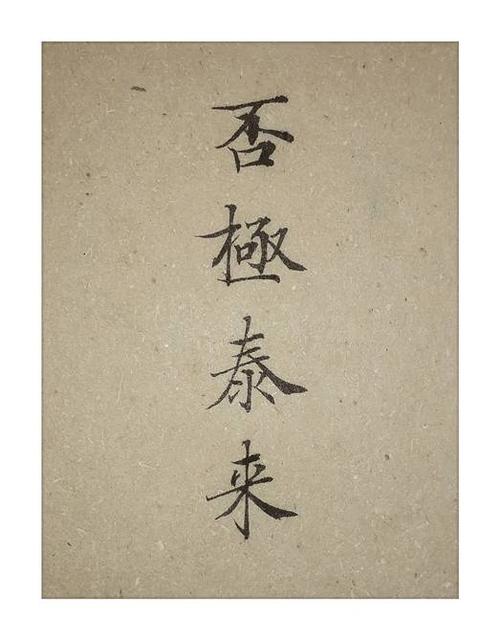 否極泰来